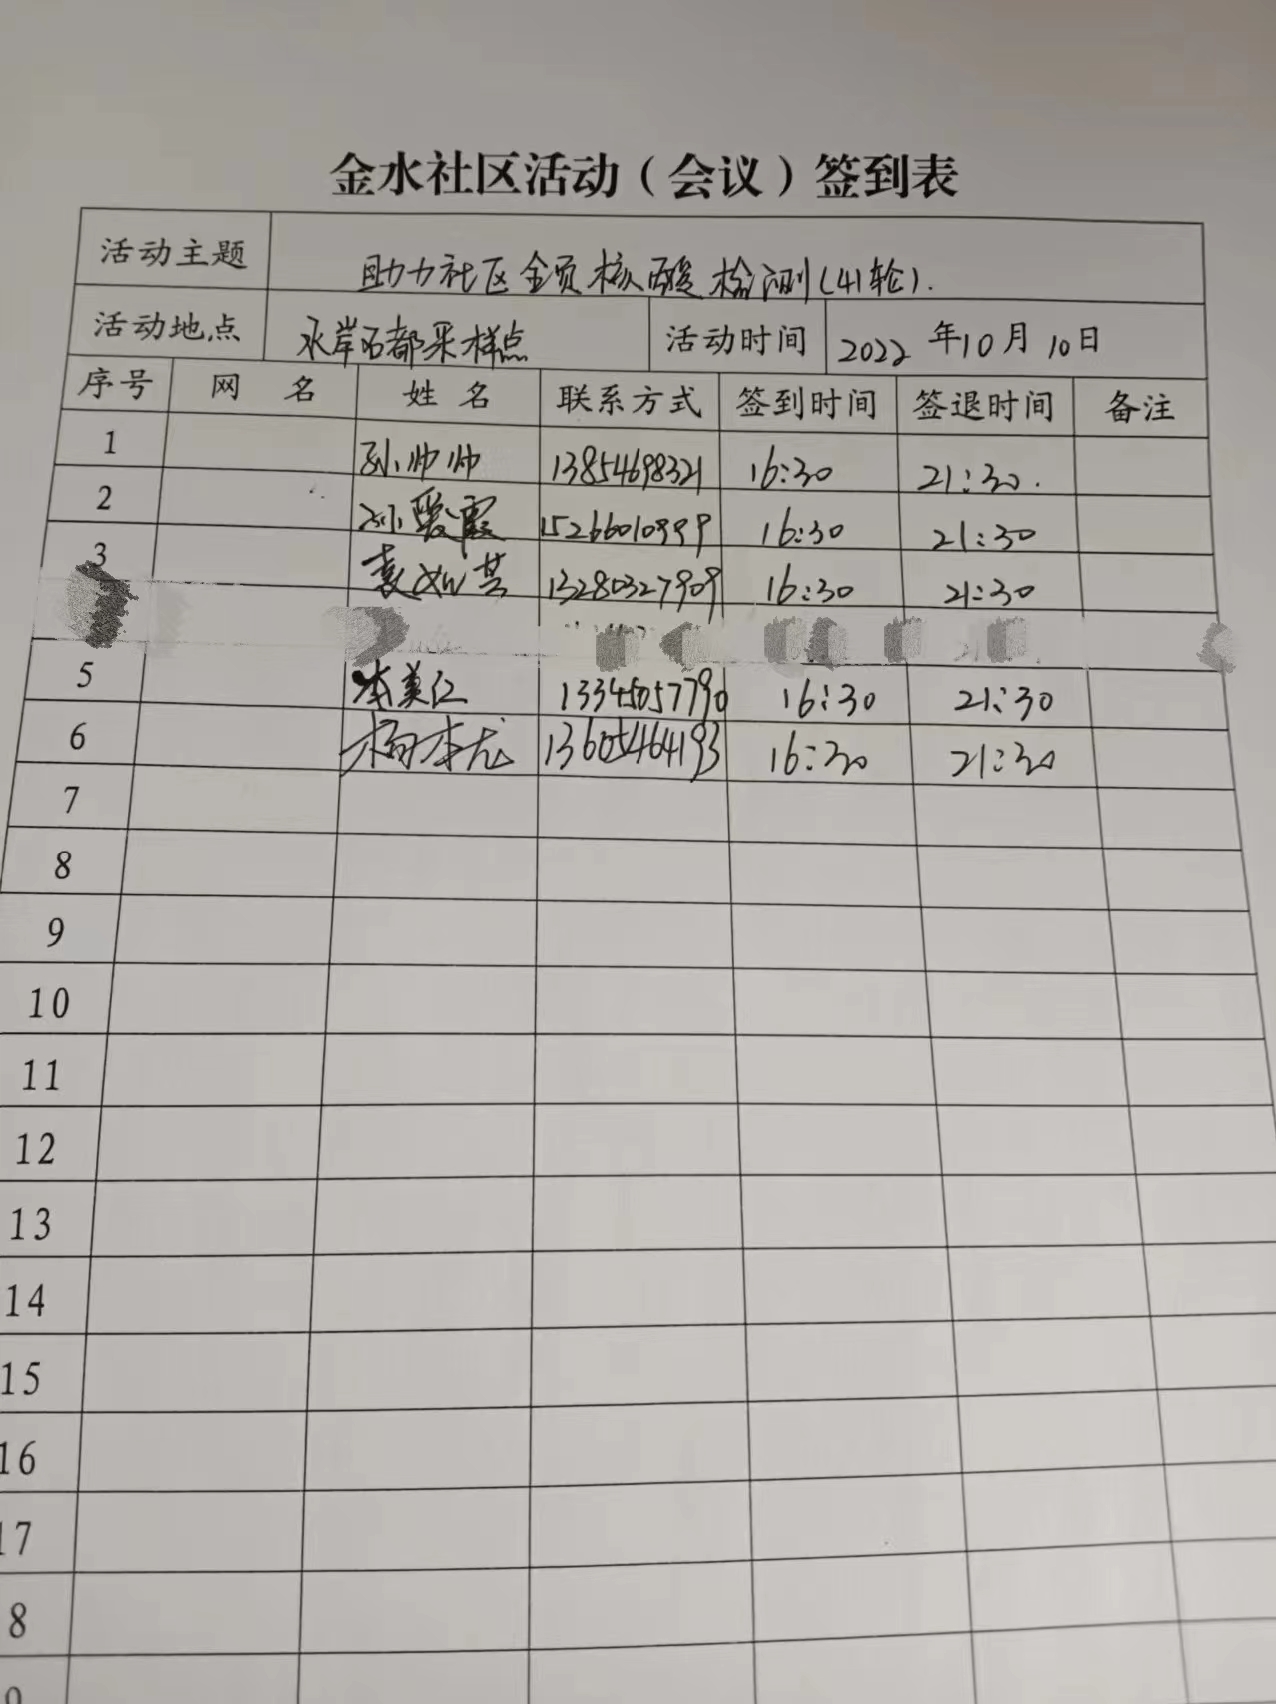 金水社区活动（会议）签到表
活动主题 助力社区全员核酸检测(41轮).
活动地点 水岸名都采样点 活动时间 2022 年10月10日
序号 网 名 姓 名 联系方式 签到时间 签退时间 备注
1 孙帅帅 13854698321 16:30 21:30.
2 孙爱霞 15266010999 16:30 21:30
3 袁 13280327909 16:30 21:30
5 美红 13345057790 16:30 21:30
6 杨本龙 13605464193 16:30 21:30
7
8
9
10
11
12
13
14
15
16
17
8